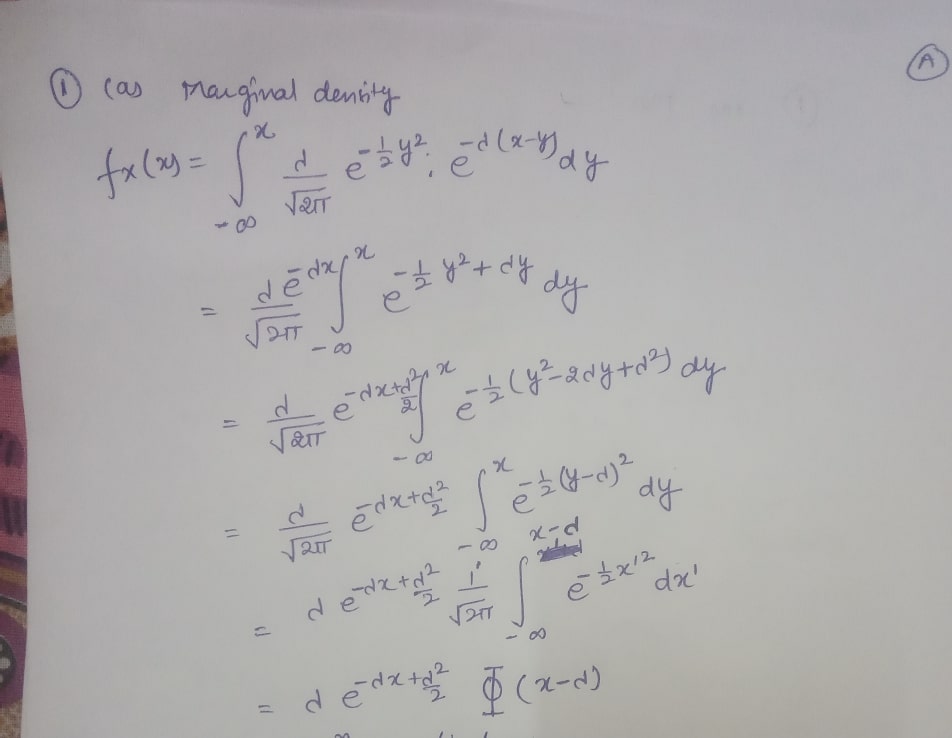 ① (a) Marginal density Ⓐ
fx(x) = ∫_{-∞}^{x} d/√2π e^{-1/2 y²} · e^{-d(x-y)} dy
= d e^{-dx}/√2π ∫_{-∞}^{x} e^{-1/2 y² + dy} dy
= d/√2π e^{-dx+d²/2} ∫_{-∞}^{x} e^{-1/2 (y²-2dy+d²)} dy
= d/√2π e^{-dx+d²/2} ∫_{-∞}^{x} e^{-1/2 (y-d)²} dy
= d e^{-dx+d²/2} 1/√2π ∫_{-∞}^{x-d} e^{-1/2 x'²} dx'
= d e^{-dx+d²/2} Φ (x-d)